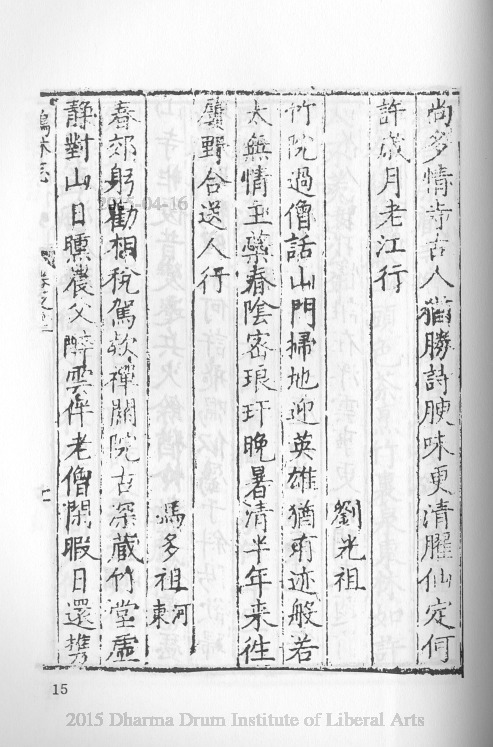 尚多情寺古人猶勝詩腴味更清臞仙定何
許歲月老江行
劉光祖
竹院過僧話山門掃地迎英雄猶有迹般若
太無情玉蘂春陰密琅玕晚暑清半年来往
野合送人行
多祖 河東
春郊躬勸相稅駕欵禪關院古深藏竹堂虛
靜對山日曛農父醉雲伴老僧閑暇日還携
林志
15
04-16
2015 Dharma Drum Institute of Liberal Arts